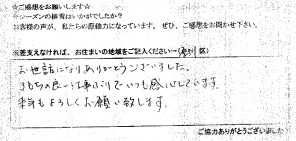 ☆ご感想をお願いします☆
☆シーズンの排雪はいかがでしたか？
お客様の声が、私たちの原動力になっています。ぜひ、ご感想をお聞かせ下さい。
※差支えなければ、お住まいの地域をご記入ください→( 区)
お世話になりありがとうございました。
きもちの良い仕事ぶりでいつも感心しています。
来年もよろしくお願い致します。
ご協力ありがとうございました